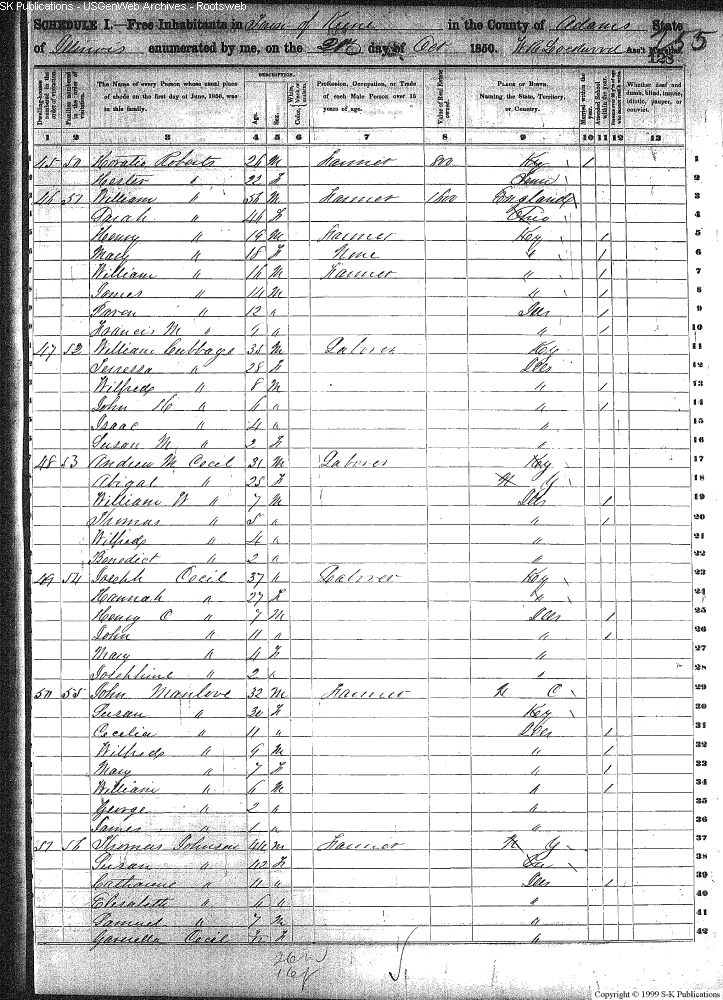 SK Publications - USGenWeb Archives - Rootsweb
SCHEDULE I.—Free Inhabitants in Town of in the County of Adams State
of Illinois enumerated by me, on the day of Oct 1850. Ass't Marshal.
DESCRIPTION.
Dwelling-houses numbered in the order of visitation. Families numbered in the order of visitation. The Name of every Person whose usual place of abode on the first day of June, 1850, was in this family. Age. Sex. Color Profession, Occupation, or Trade of each Male Person over 15 years of age. Value of Real Estate owned. PLACE OF BIRTH. Naming the State, Territory, or Country. Married within the year. Whether deaf and dumb, blind, insane, idiotic, pauper, or convict.
1 2 3 4 5 6 7 8 9 10 11 12 13
45 50 Horatio Roberts 26 M Farmer 800 Ky 1 1
Hester " 22 F 2
46 51 William " 56 M Farmer England 3
Sarah " 46 F Ohio 4
Henry " 19 M Farmer Key 1 5
Mary " 18 F None " 1 6
William " 16 M Farmer " 1 7
James " 14 M " 1 8
" 12 " Ills 1 9
Francis M " 9 " " 1 10
47 52 William Cubbage 35 M Laborer Ky 11
" 28 F Ills 12
Wilfred " 8 M " 1 13
John H " 6 " " 1 14
Isaac " 4 " " 15
Susan M " 2 F " 16
48 53 Andrew M Cecil 31 M Laborer Key 17
Abigal " 25 F N Y 18
William W " 7 M Ills 1 19
Thomas " 5 " " 1 20
Wilfred " 4 " " 21
Benedict " 2 " " 22
49 54 Joseph Cecil 37 " Laborer Key 23
Hannah " 27 F " 24
Henry C " 7 M Ills 1 25
John " 11 " " 1 26
Mary " 4 F " 27
Josephine " 2 " " 28
50 55 John Manlove 32 M Farmer C 29
Susan " 30 F Key 30
Cecelia " 11 " Ills 1 31
Wilfred " 9 M " 1 32
Mary " 7 F " 1 33
William " 6 M " 1 34
George " 2 " " 35
James " 1 " " 36
51 56 Thomas Johnson 44 M Farmer N Y 37
Susan " 42 F 38
Catharine " 11 " Ills 1 39
Elisabeth " " " 40
Samuel " 7 M " 41
Cecil F " 42
Copyright © 1999 S-K Publications